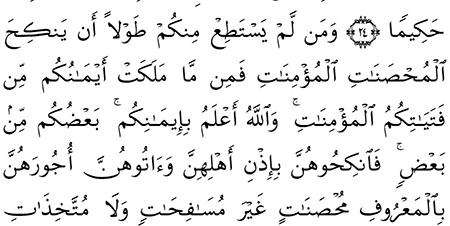 حَكِيمًا ﴿٢٤﴾ وَمَن لَّمْ يَسْتَطِعْ مِنكُمْ طَوْلًا أَن يَنكِحَ
ٱلْمُحْصَنَٰتِ ٱلْمُؤْمِنَٰتِ فَمِن مَّا مَلَكَتْ أَيْمَٰنُكُم مِّن
فَتَيَٰتِكُمُ ٱلْمُؤْمِنَٰتِ ۚ وَٱللَّهُ أَعْلَمُ بِإِيمَٰنِكُم ۚ بَعْضُكُم مِّنۢ
بَعْضٍ ۚ فَٱنكِحُوهُنَّ بِإِذْنِ أَهْلِهِنَّ وَءَاتُوهُنَّ أُجُورَهُنَّ
بِٱلْمَعْرُوفِ مُحْصَنَٰتٍ غَيْرَ مُسَٰفِحَٰتٍ وَلَا مُتَّخِذَٰتِ